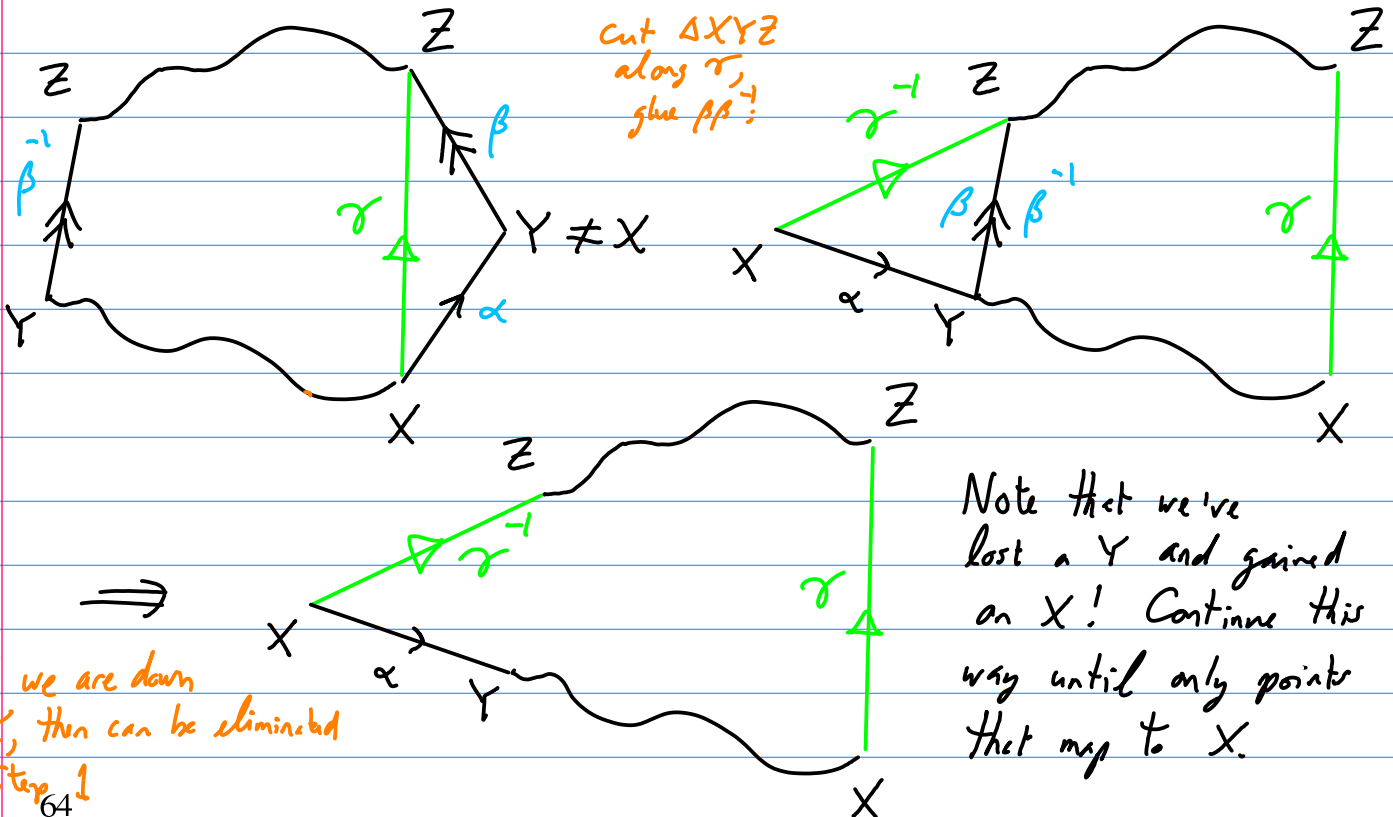 Z
Z
β⁻¹
γ
β
Y ≠ X
α
Y
X
cut ΔXYZ
along γ,
glue ββ⁻¹!
Z
Z
γ⁻¹
X
β
β⁻¹
γ
α
Y
X
⟹
Z
Z
γ⁻¹
γ
X
α
Y
X
Note that we've
lost a Y and gained
an X! Continue this
way until only points
that map to X.
we are down
then can be eliminated
1
64